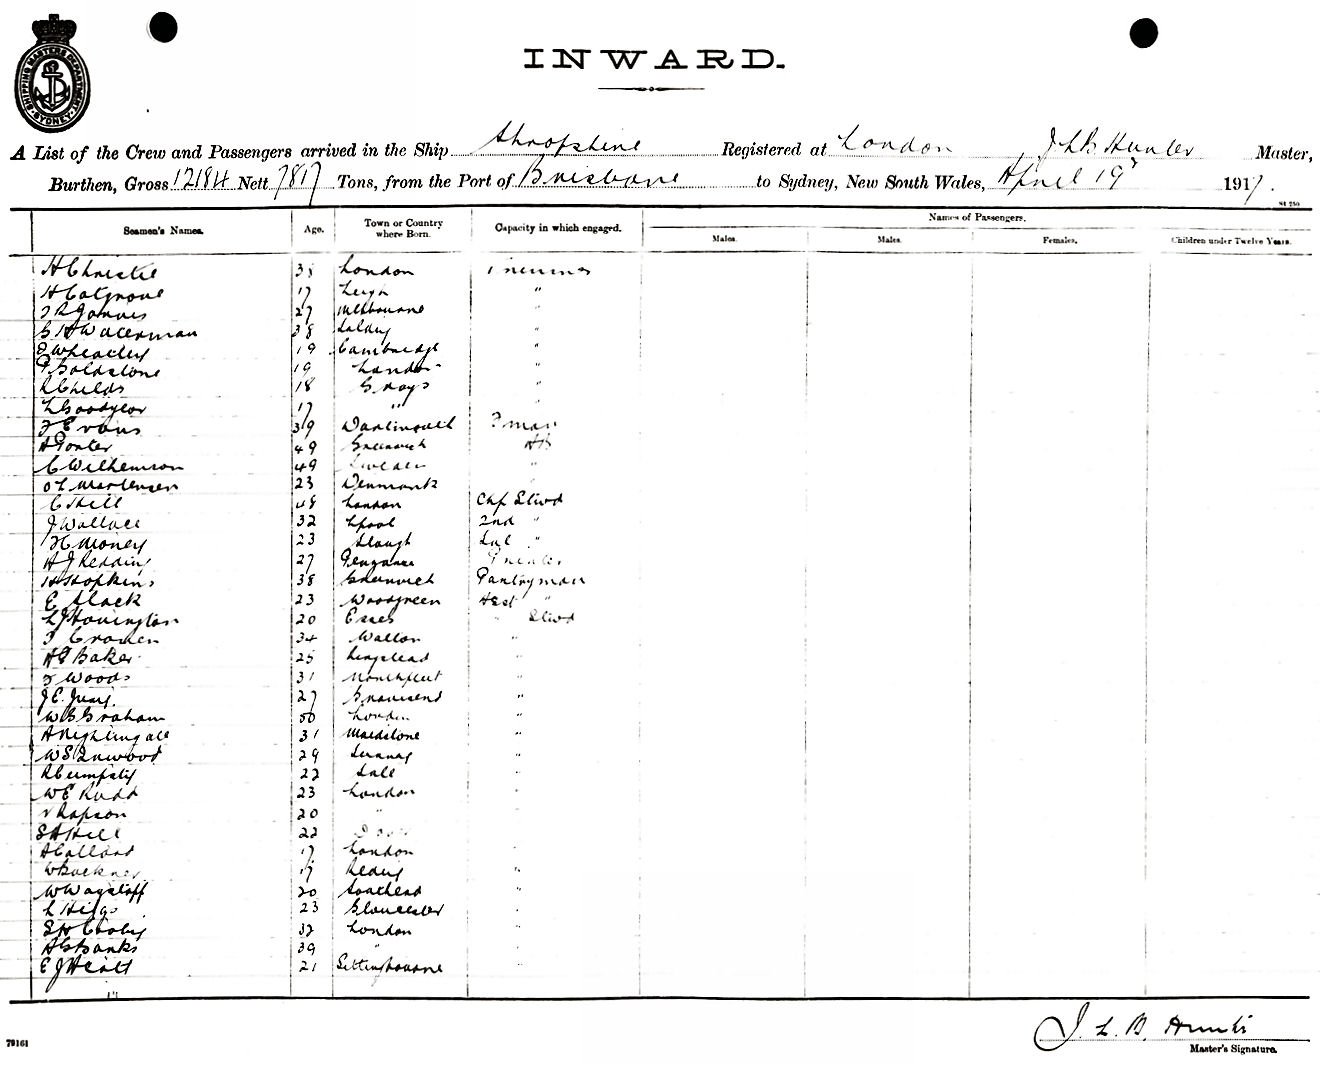 SHIPPING MASTERS DEPARTMENT SYDNEY
INWARD.
A List of the Crew and Passengers arrived in the Ship Shropshire Registered at London J L B Hunter Master,
Burthen, Gross 12184 Nett 7817 Tons, from the Port of Brisbane to Sydney, New South Wales, April 19 1917.
Seamen's Names. Age. Town or Country where Born. Capacity in which engaged. Names of Passengers.
Males. Males. Females. Children under Twelve Years.
A Christie 38 London
H Colgrove 17 Leigh "
27 Melbourne "
Waterman 38 "
Wheatley 19 Cambridge "
Goldstone 19 London "
R Childs 18 Grays "
L Goodyear 17 " "
F Evans 39 Dartmouth Fman
A Porter 49 Greenwich AB
C Wilhemson 49 Sweden "
O L Martensen 23 Denmark "
C Hill 48 London Chf Stwd
J Wallace 32 Lpool 2nd "
H Money 23 Slough Sal "
A J Reddin 27 Penzance
H Hopkins 38 Greenwich Pantryman
E Slack 23 Woodgreen Asst "
L J Hovington 20 Essex " Stwd
34 Walton "
A E Baker 25 "
F Woods 31 Northfleet "
J E 27 Gravesend "
W G Graham 50 London "
A Nightingale 31 Maidstone "
W S Inwood 29 "
R Cumpsty 22 Sale "
W E Rudd 23 London "
Rapson 20 " "
S A Hill 22 "
A Collard 17 London "
W Buckner 17 "
W Wagstaff 20 Southend "
L Higgs 23 Gloucester "
32 London "
A G Banks 39 " "
E J Hiatt 21 Sittingbourne "
J. L. B. Hunter
Master's Signature.
79161